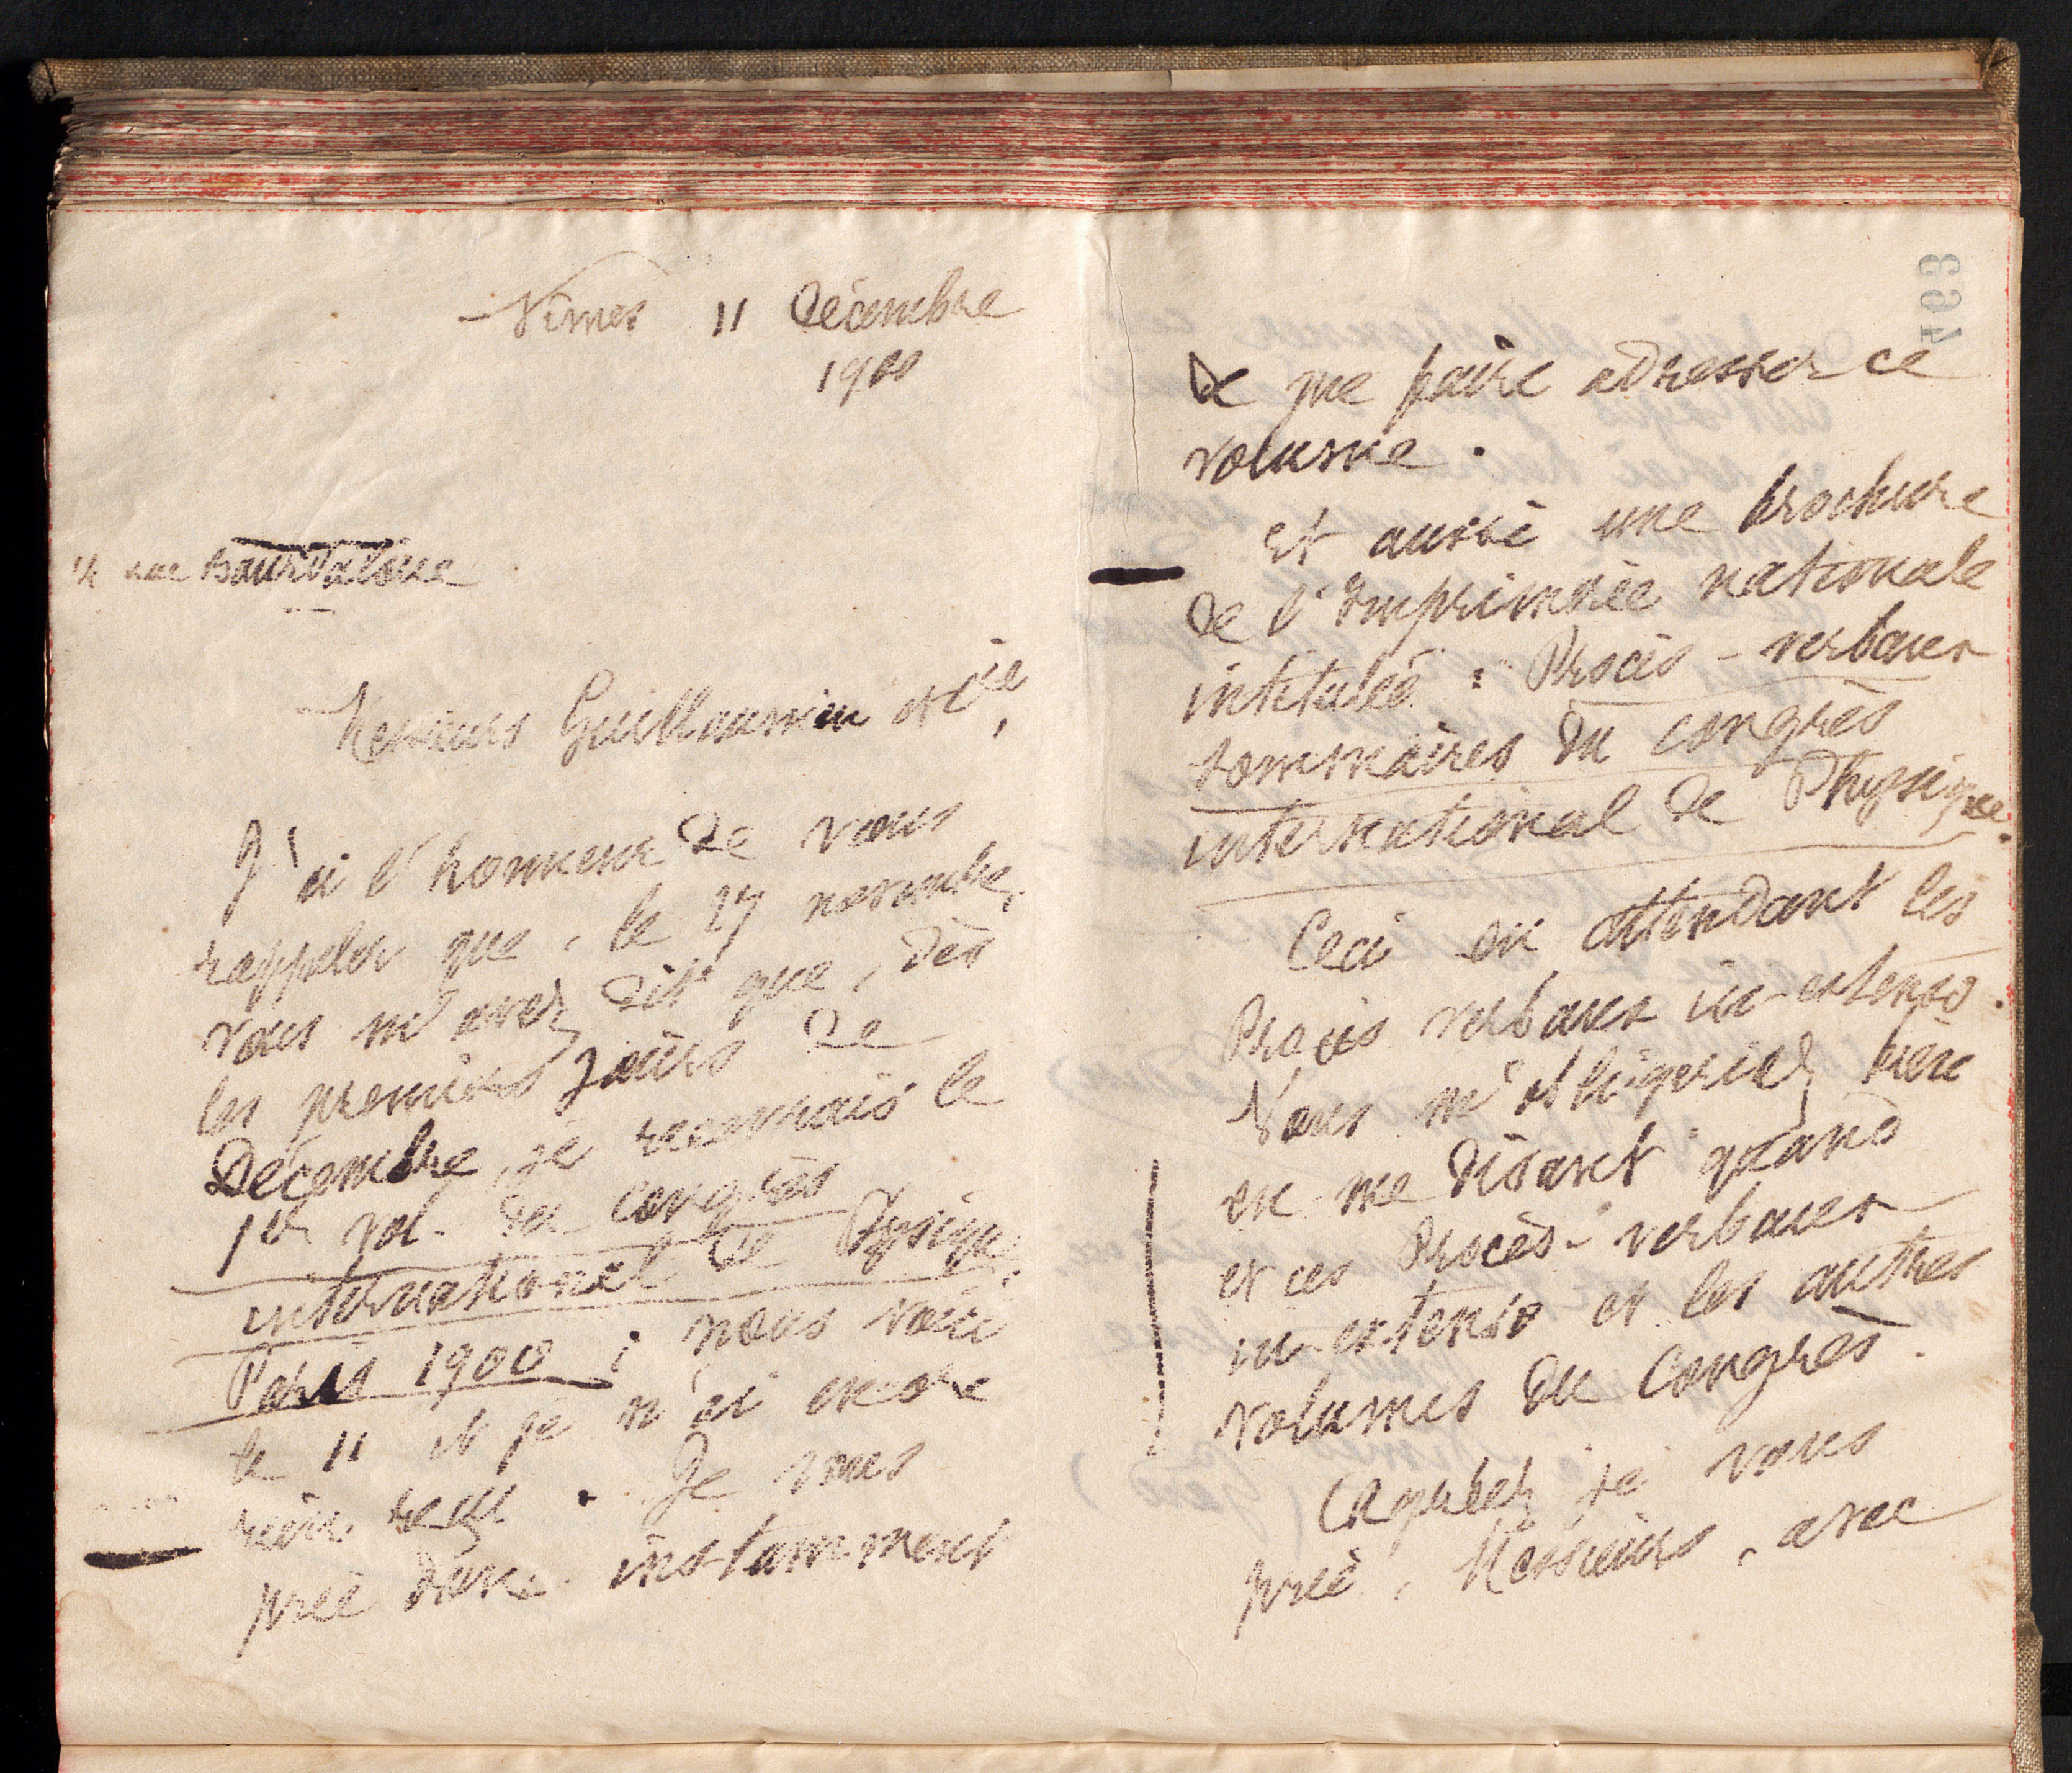 Nîmes 11 Décembre
1900
rue Bourdaloue
Messieurs Guillaumin et Cie,
J'ai l'honneur de vous
rappeler que, le 27 novembre,
vous m'avez dit que, dès
les premiers jours de
Décembre, je recevrais le
1er vol. du congrès
international de Physique,
Paris 1900 ; nous voici
le 11 et je n'ai encore
rien reçu. Je vous
prie donc instamment
de me faire adresser ce
volume.
Et aussi une brochure
de l'Imprimerie nationale
intitulée : Procès-verbaux
sommaires du congrès
international de Physique.
Ceci en attendant les
Procès verbaux in-extenso.
Vous m'obligeriez bien
en me disant quand
et ces Procès-verbaux
in-extenso et les autres
volumes du Congrès.
Agréez je vous
prie, Messieurs, avec
563